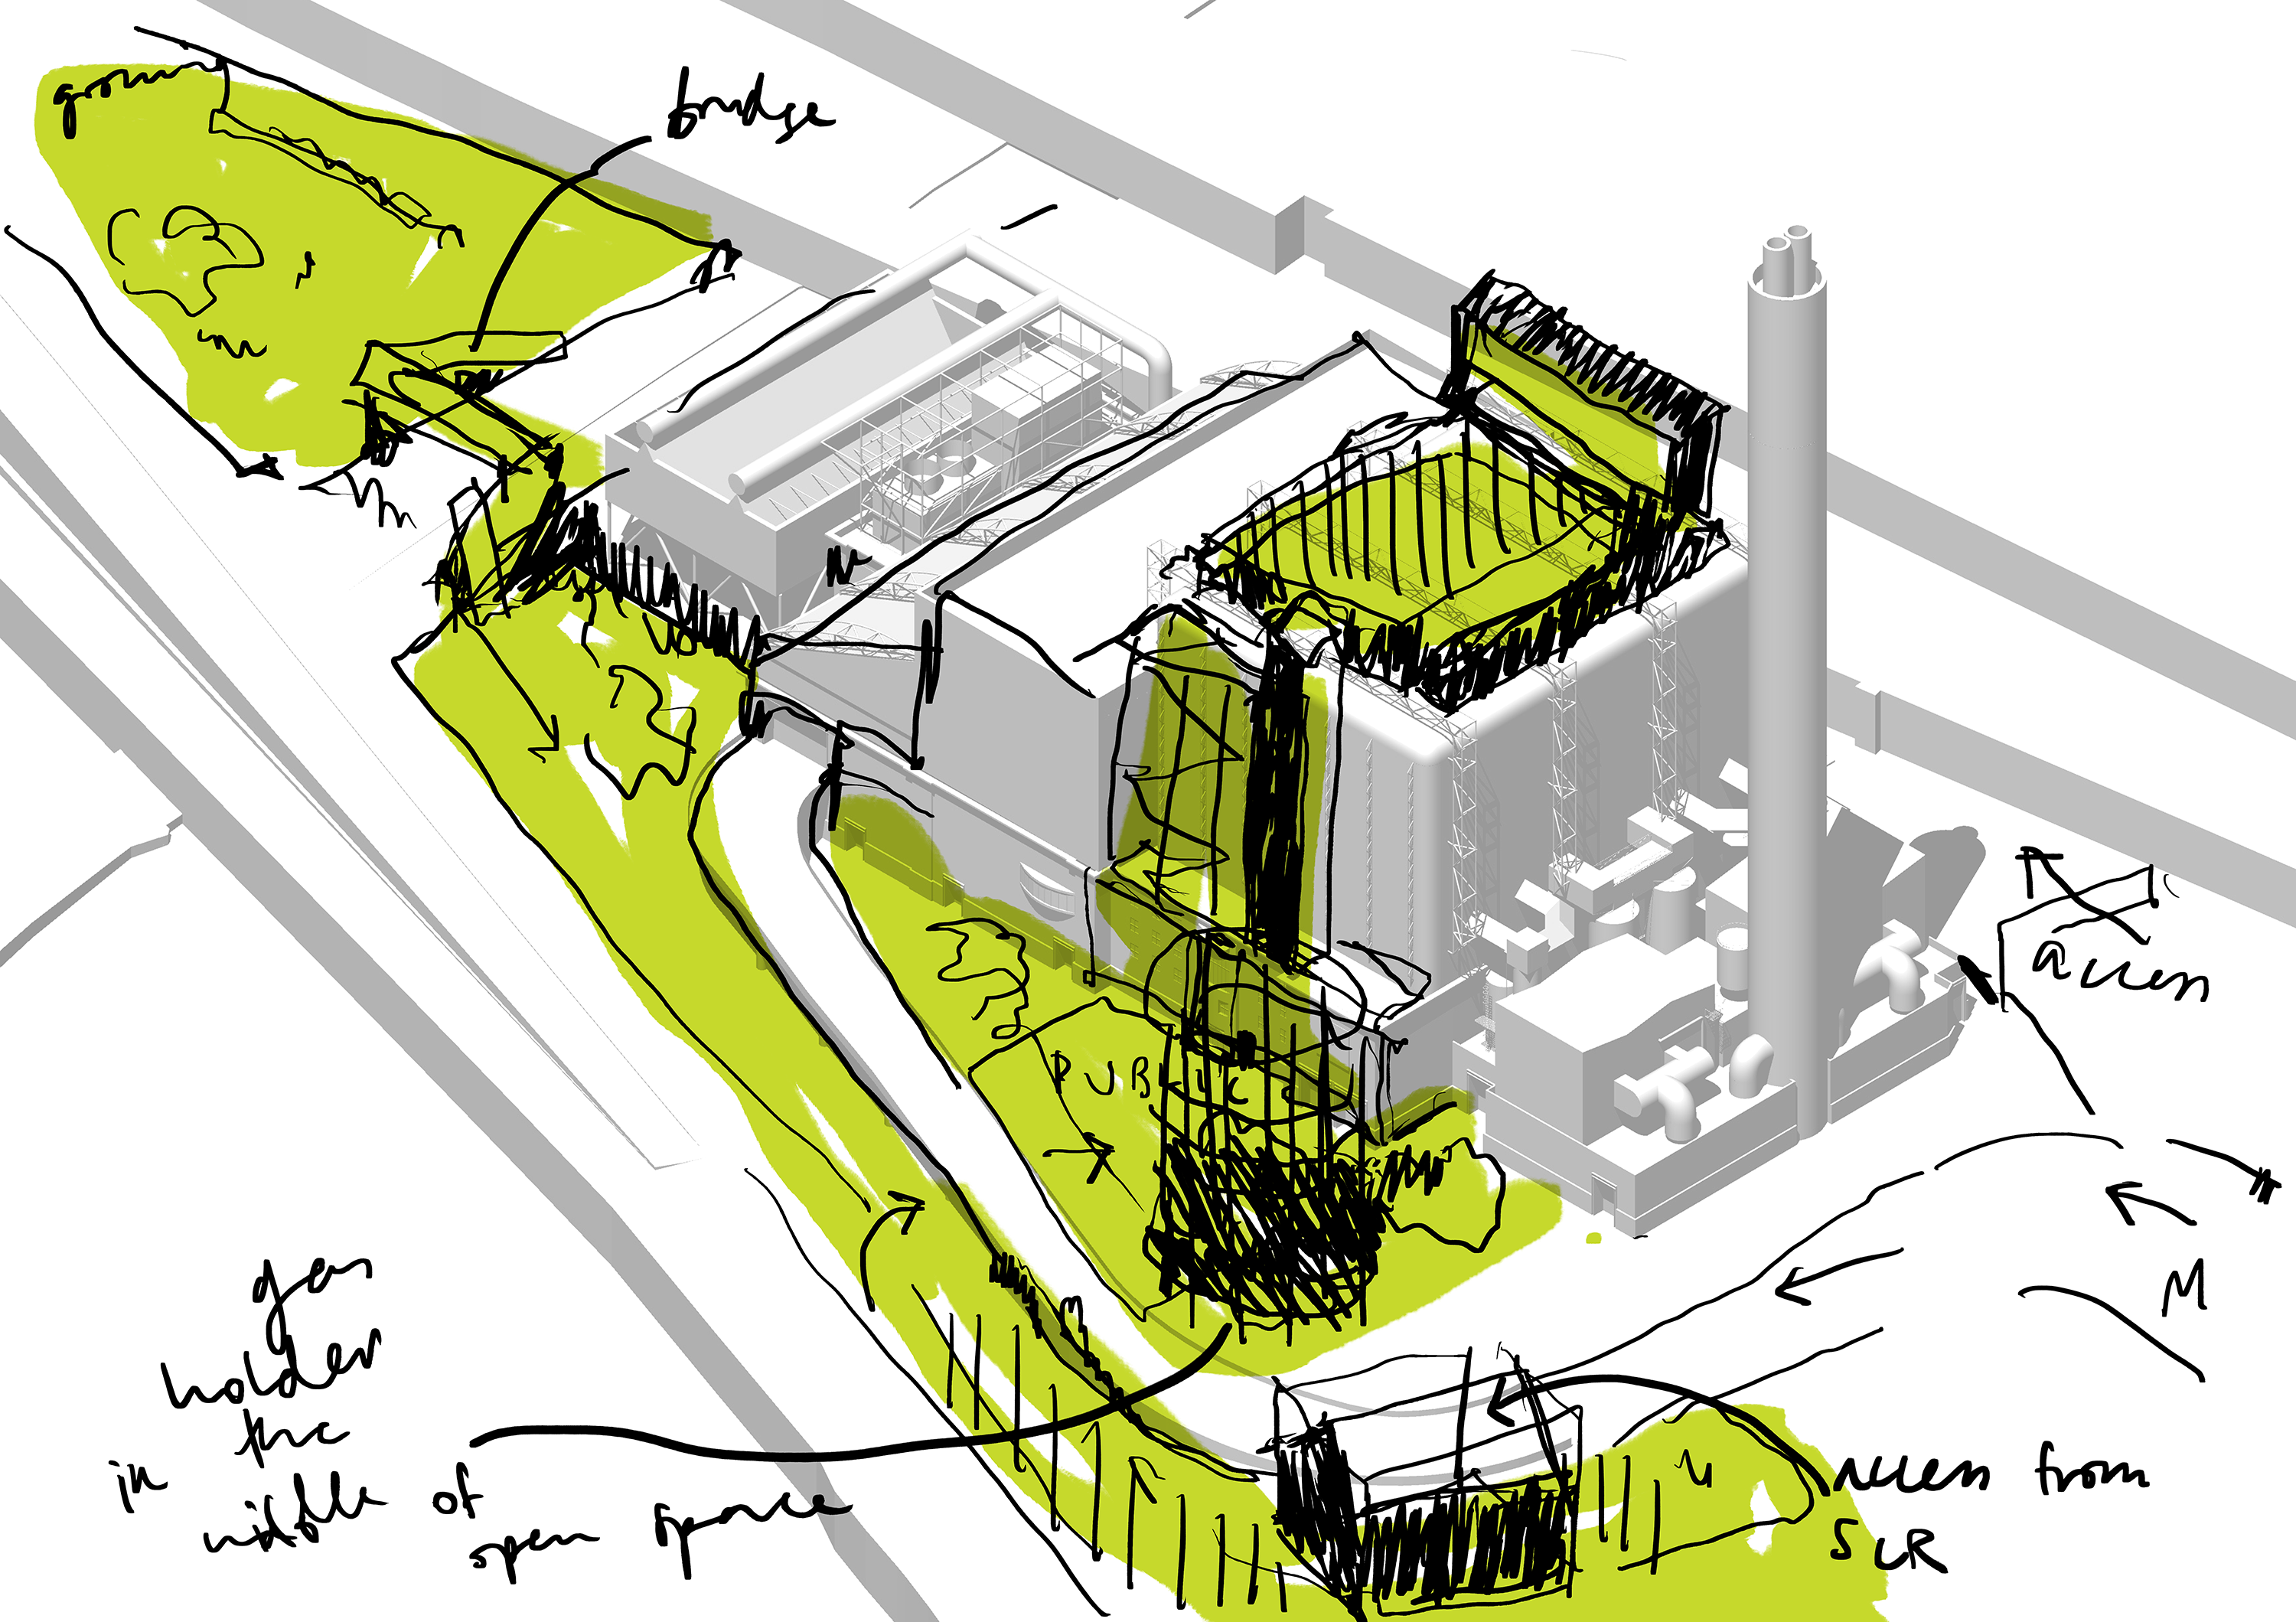 green
bridge
access
PUBLIC
M
gas
holder
the
in
middle of
open space
access from
SLR